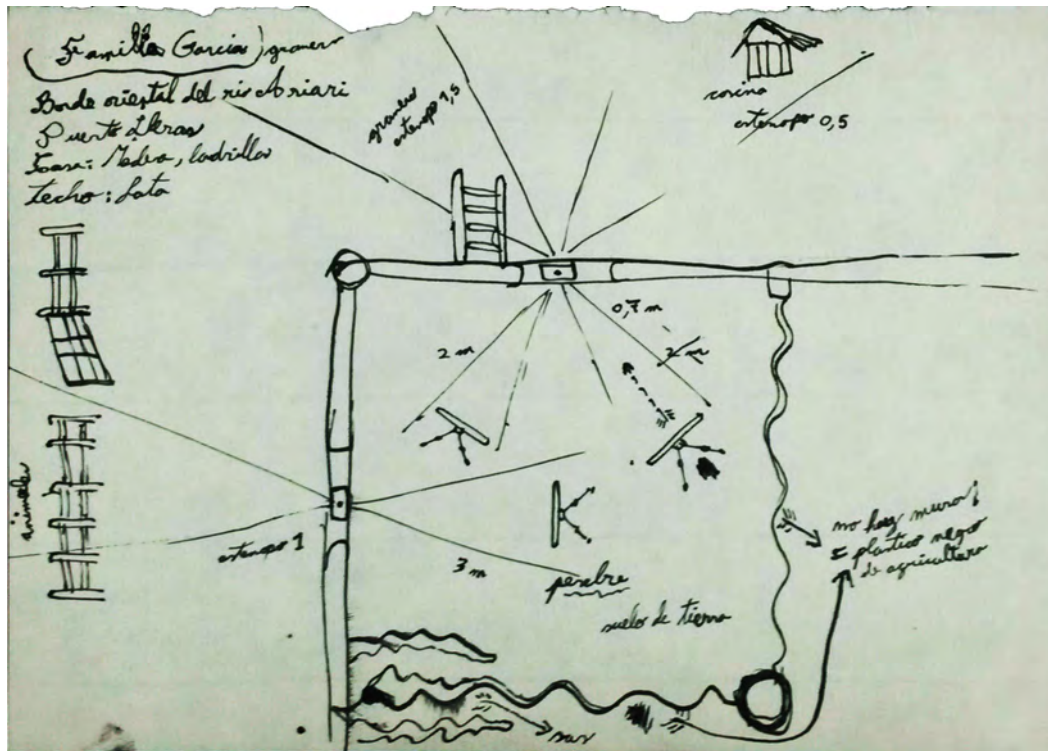 Familia García granero
Borde oriental del río Ariari
Puerto Lleras
Casa: Madera, ladrillos
techo: Lata
granero
estenopo 1,5
cocina
estenopo 0,5
0,7 m
2 m
2 m
animales
estenopo 1
3 m
pesebre
suelo de tierra
no hay muro!
= plastico negro
de agricultura